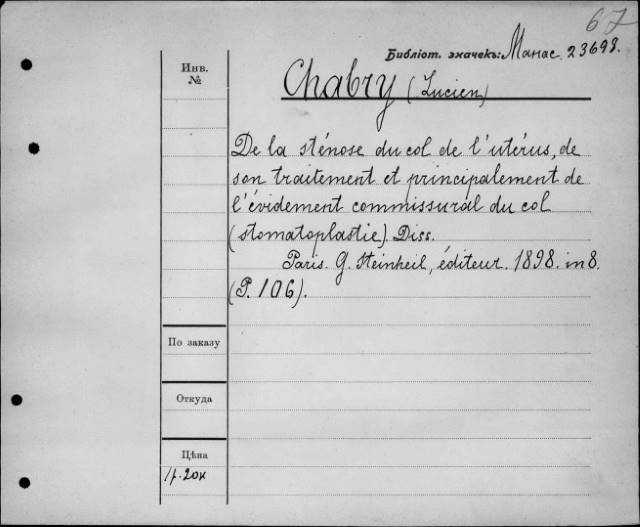 67
Библіот. значекъ: Манас. 23698.
Инв. №
Chabry (Lucien)
De la sténose du col de l'utérus, de
son traitement et principalement de
l'évidement commissural du col
(stomatoplastie). Diss.
Paris. G. Steinheil, éditeur. 1898. in 8.
(P. 106).
По заказу
Откуда
Цѣна
1 р. 20 к